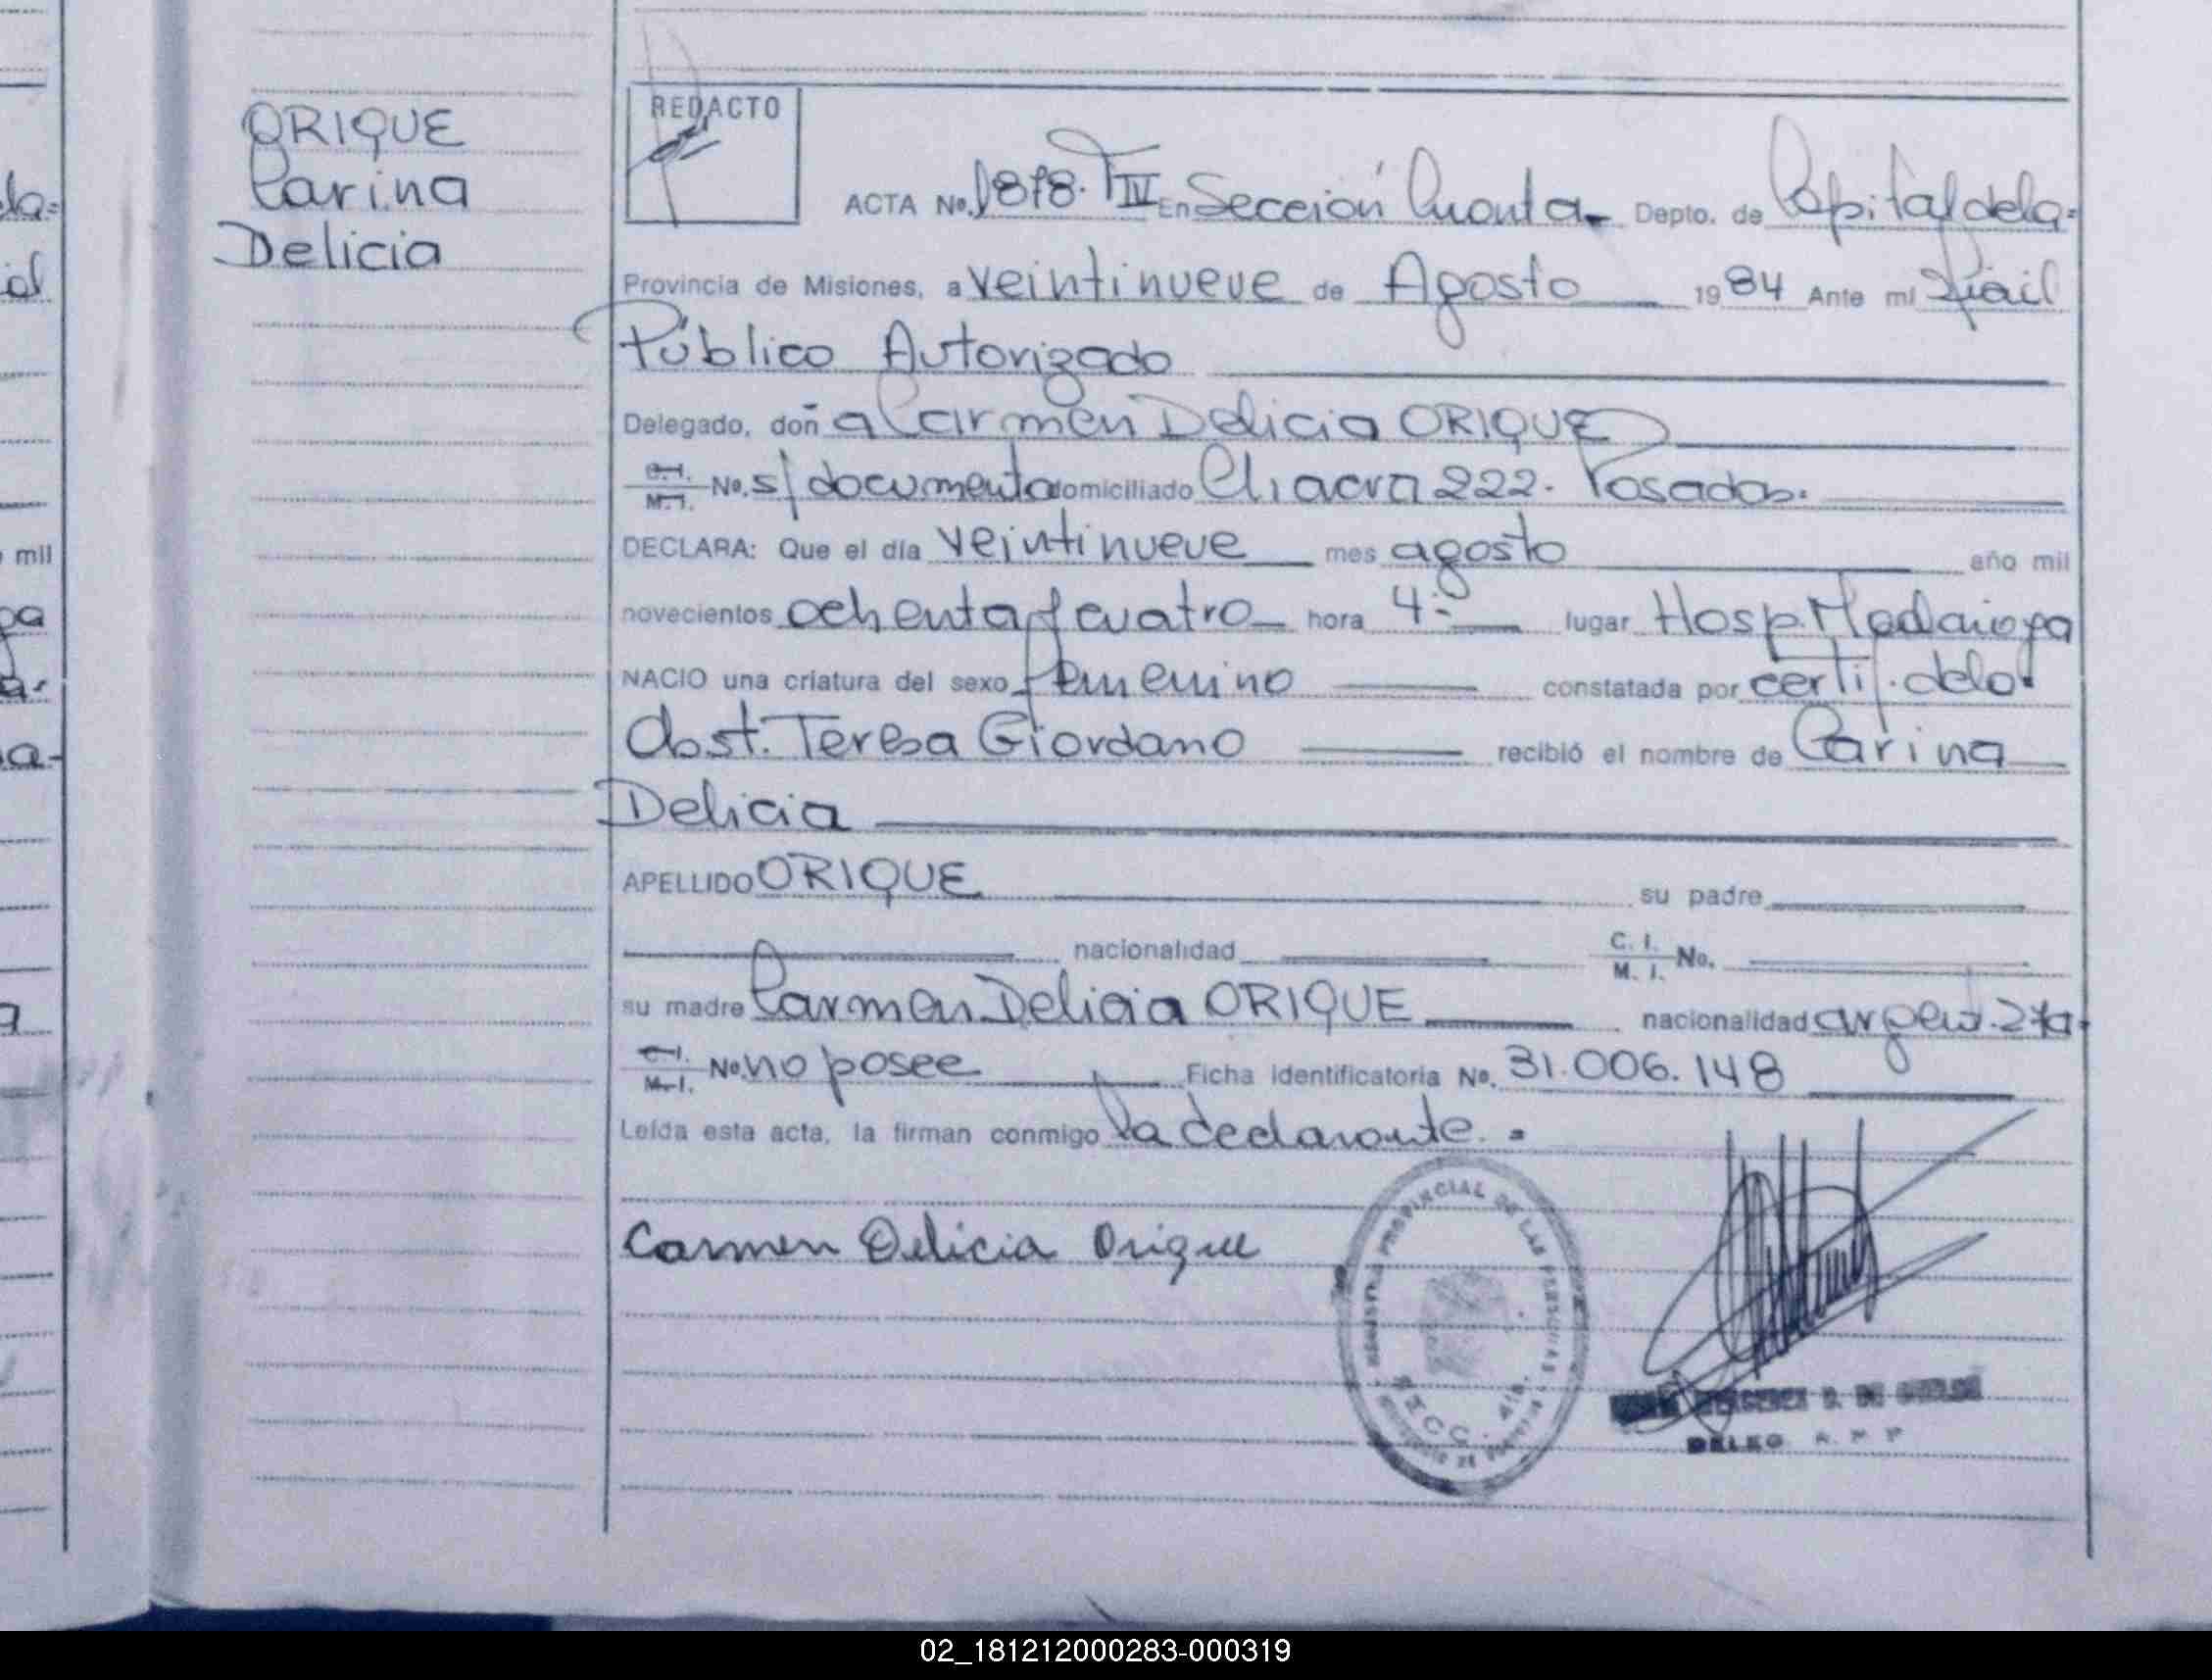 ORIQUE
Carina
Delicia
REDACTO
ACTA No. 1878. T IV En Sección Cuarta Depto. de Capital de la=
Provincia de Misiones, a veintinueve de Agosto 1984 Ante mi Ofiail
Público Autorizado
Delegado, doña Carmen Delicia ORIQUE
C.I. M.I. No. s/documento domiciliado Chacra 222. Posadas.
DECLARA: Que el día veintinueve mes agosto año mil
novecientos ochenta y cuatro hora 4:- lugar Hosp. Madariaga
NACIO una criatura del sexo femenino constatada por certif. de la
Obst. Teresa Giordano recibió el nombre de Carina
Delicia
APELLIDO ORIQUE su padre
nacionalidad C. I. M. I. No.
su madre Carmen Delicia ORIQUE nacionalidad argent.
C.I. M.I. No. no posee Ficha identificatoria No. 31.006.148
Leída esta acta, la firman conmigo la declarante. =
Carmen Delicia Orique
REGISTRO PROVINCIAL DE LAS PERSONAS
SECC. 4ta.
DELEG. R. P. P
mil
02_181212000283-000319